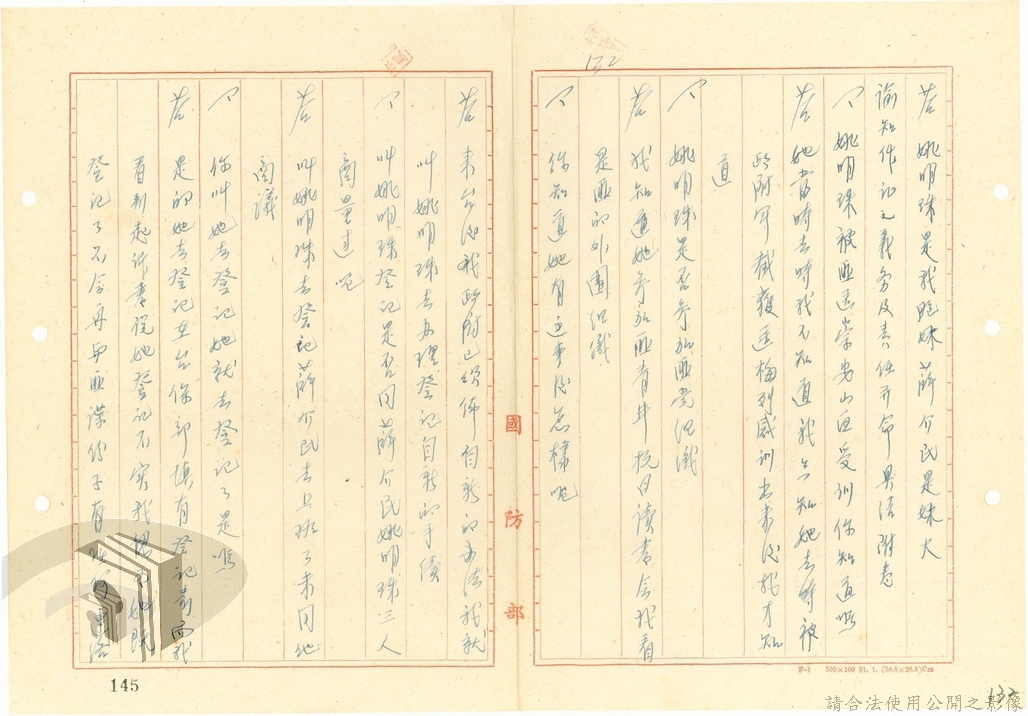 132
答 姚明珠是我胞妹薛介民是妹夫
諭知作証之義務及責任并命具結附卷
問 姚明珠被匪送崇安山區受訓你知道嗎
答 她當時去時我不知道我只知她去時被
政府軍截獲送梅列感訓出來後我才知
道
問 姚明珠是否參加匪黨組織
答 我知道她參加匪青年抗日讀書會我看
是匪的外圍組織
問 你知道她有這事後怎樣呢
答 來台後我政府已頒佈自新的辦法我就
叫姚明珠去办理登記自新的手續
問 叫姚明珠登記是否同薛介民姚明珠三人
商量过呢
答 叫姚明珠去登記薛介民去上班了未同他
商議
問 你叫她去登記她就去登記了是嗎
答 是的她去登記在台保部填有登記表而我
看到起訴書說她登記不實我想 她既
登記了不會再與匪諜份子有 連絡
國防部
F-1 500×100 51. 1. (38.8×26.8)Cm
145
132
請合法使用公開之影像